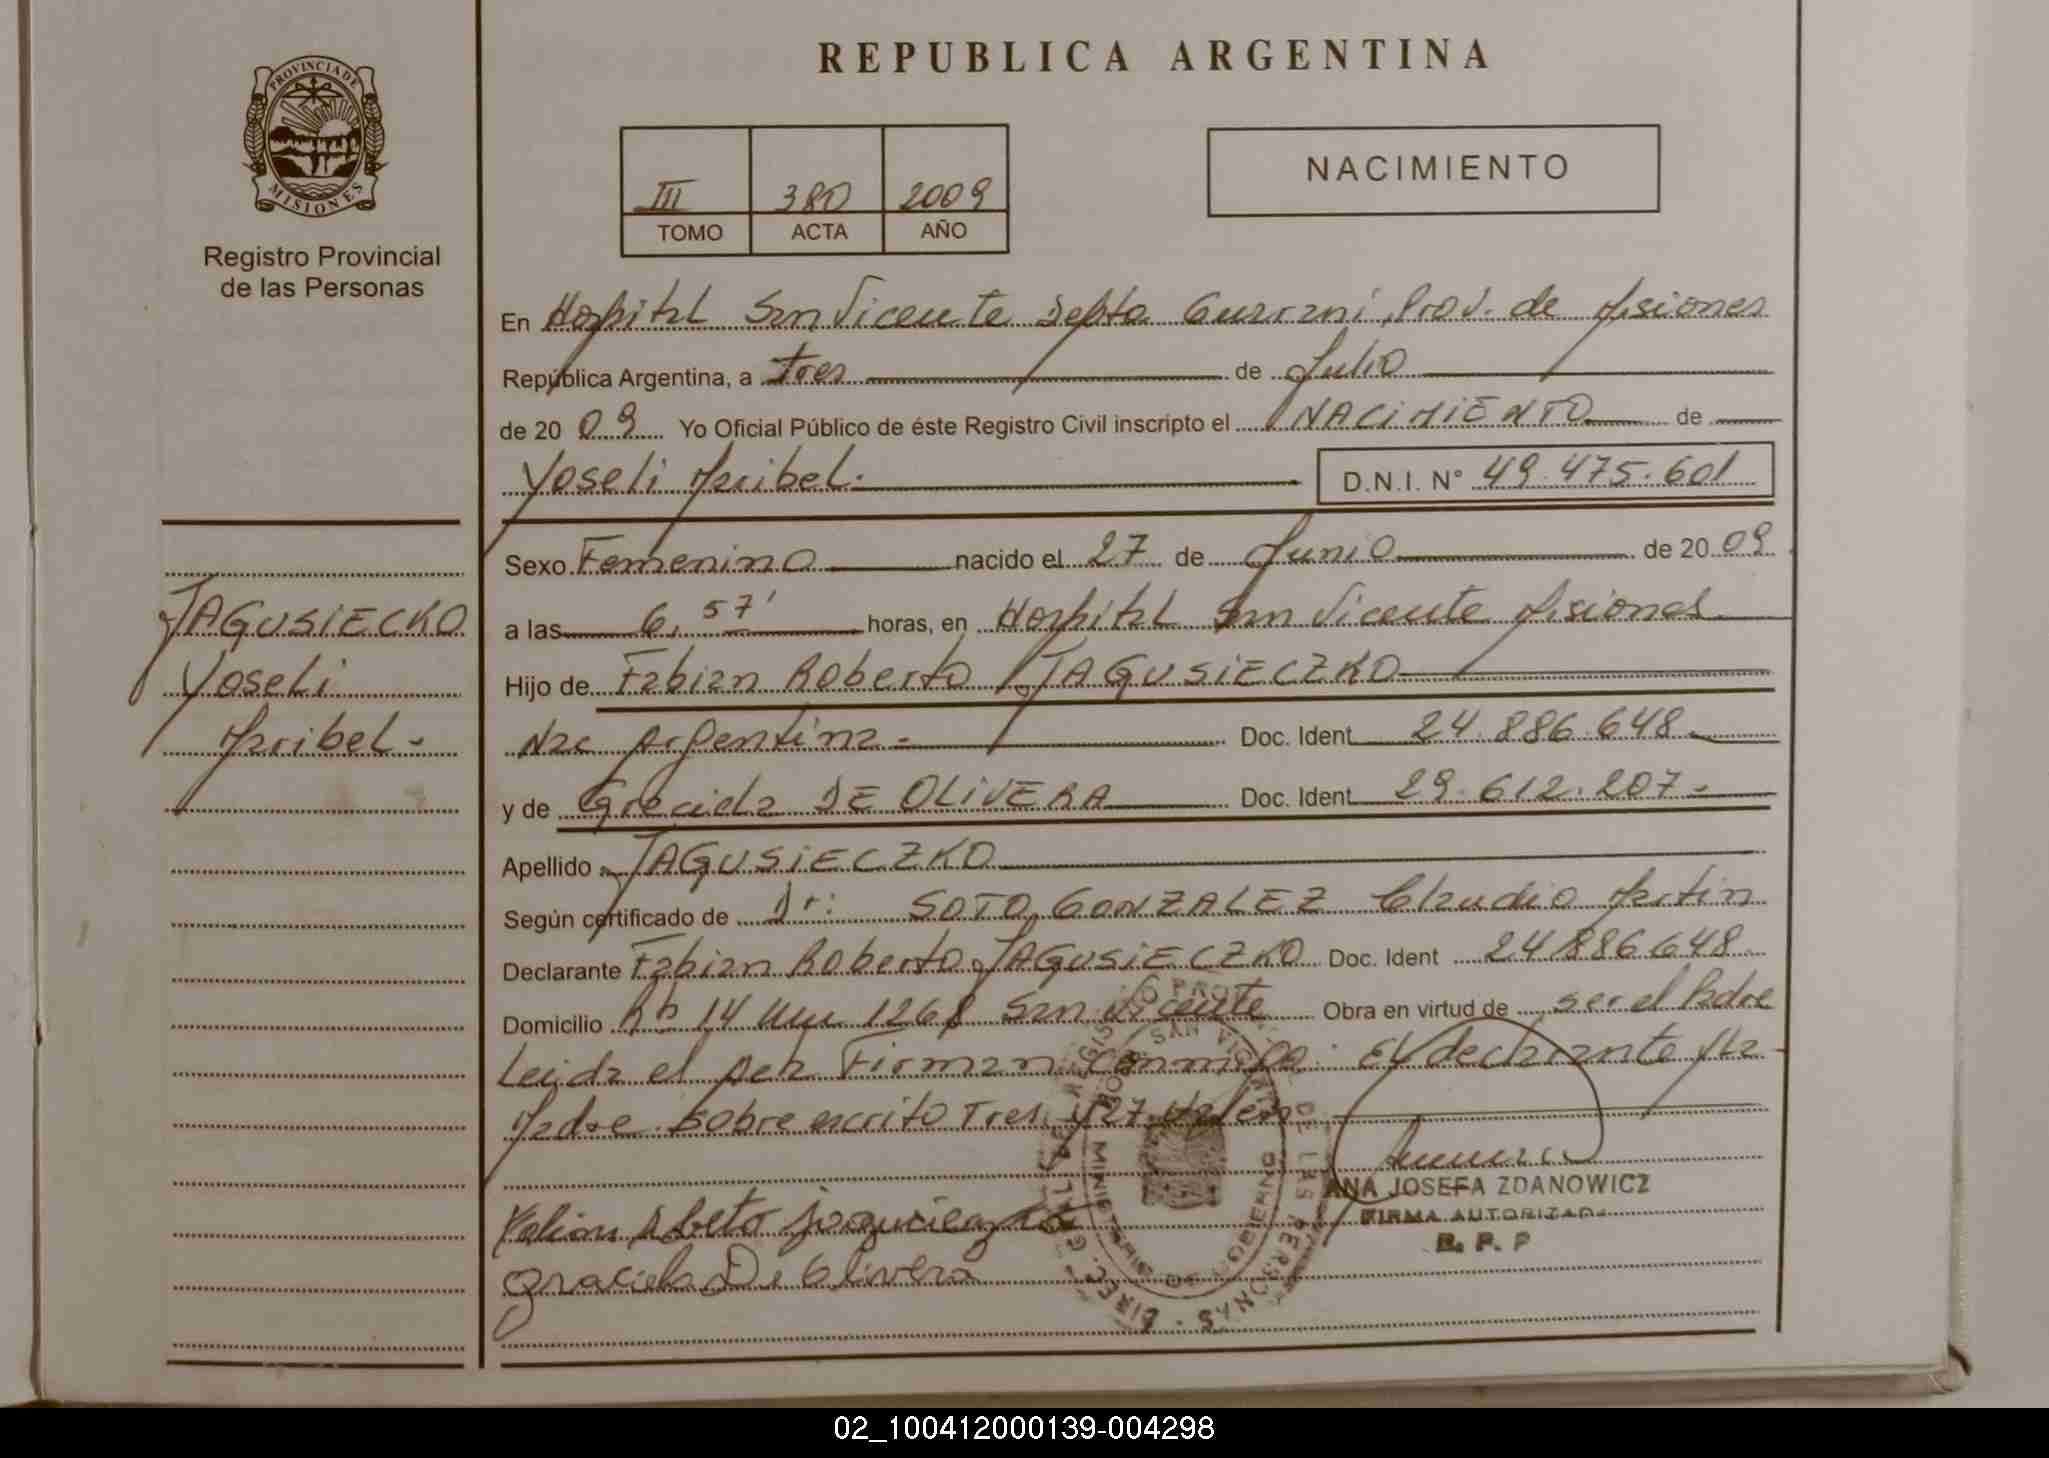 REPUBLICA ARGENTINA
PROVINCIA DE
MISIONES
Registro Provincial
de las Personas
III 380 2009
TOMO ACTA AÑO
NACIMIENTO
En Hospital San Vicente Depto Guarani, Prov. de Misiones
República Argentina, a tres de Julio
de 2009 Yo Oficial Público de éste Registro Civil inscripto el NACIMIENTO de
Yoseli Maribel. D.N.I. N° 49.475.601
Sexo Femenino nacido el 27 de Junio de 2009
JAGUSIECKO
Yoseli
Maribel-
a las 6,57' horas, en Hospital San Vicente Misiones
Hijo de Fabian Roberto JAGUSIECZKO
Nac Argentina- Doc. Ident 24.886.648
y de Graciela DE OLIVERA Doc. Ident 29.612.207-
Apellido JAGUSIECZKO
Según certificado de Dr: SOTO GONZALEZ Claudio Martin
Declarante Fabian Roberto JAGUSIECZKO Doc. Ident 24886648
Domicilio 14 1268 San Vicente Obra en virtud de ser el Padre
Leida el Firman conmigo: El declarante y la
Madre sobre escrito Tres y 27 Valen
ANA JOSEFA ZDANOWICZ
FIRMA AUTORIZADA
R. P. P
Graciela De Olivera
MINISTERIO DE GOBIERNO
DE LAS PERSONAS
02_100412000139-004298